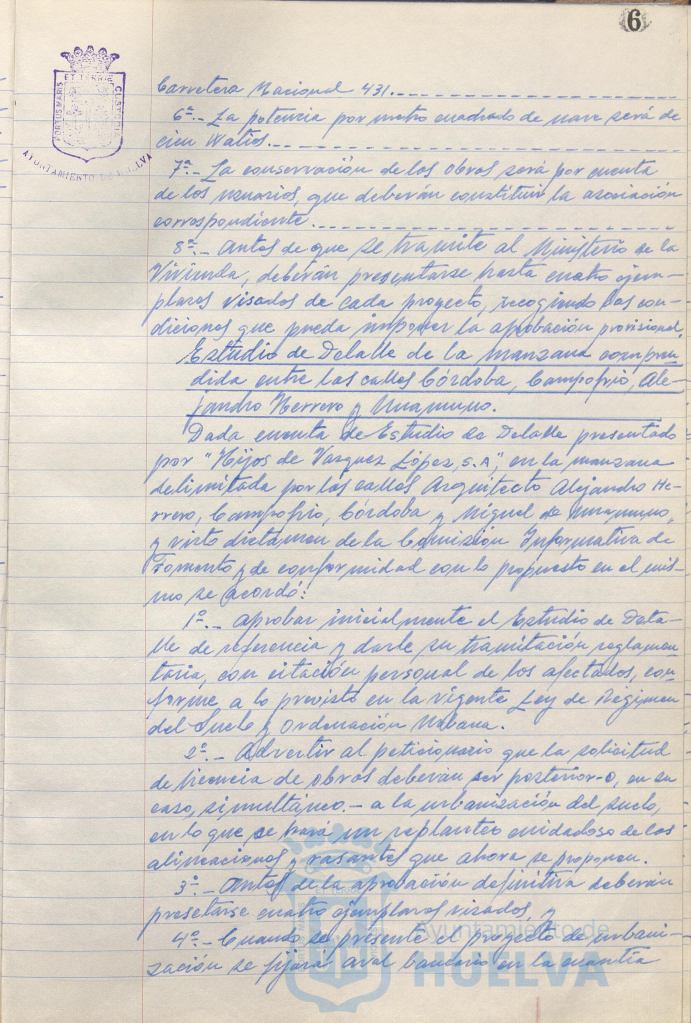 6
PORTUS MARIS ET TERRÆ CUSTODIA
AYUNTAMIENTO DE HUELVA
Carretera Nacional 431.
6ª.- La potencia por metro cuadrado de nave será de
cien Watios.
7ª.- La conservación de los obras será por cuenta
de los usuarios, que deberán constituir la asociación
correspondiente.
8ª.- Antes de que se tramite al Ministerio de la
Vivienda, deberán presentarse hasta cuatro ejem-
plares visados de cada proyecto, recogiendo las con-
diciones que pueda imponer la aprobación provisional.
Estudio de Detalle de la manzana compren
dida entre las calles Córdoba, Campofrio, Ale-
jandro Herrero y Unamuno.
Dada cuenta de Estudio de Detalle presentado
por "Hijos de Vazquez López, S.A", en la manzana
delimitada por las calles Arquitecto Alejandro He-
rrero, Campofrio, Córdoba y Miguel de Unamuno,
y visto dictamen de la Comisión Informativa de
Fomento y de conformidad con lo propuesto en el mis-
mo se acordó:
1º.- Aprobar inicialmente el Estudio de Deta-
lle de referencia y darle su tramitación reglamen
taria, con citación personal de los afectados, con
forme a lo previsto en la vigente Ley de Régimen
del Suelo y Ordenación Urbana.
2º.- Advertir al peticionario que la solicitud
de licencia de obras deberán ser posterior-o, en su
caso, simultáneo.- a la urbanización del suelo,
en lo que se hará un replanteo cuidadoso de las
alineaciones y rasantes que ahora se proponen.
3º.- Antes de la aprobación definitiva deberán
presetarse cuatro ejemplares visados, y
4º.- Cuando se presente el proyecto de urbani-
zación se fijará aval bancario en la cuantía
Ayuntamiento de
HUELVA